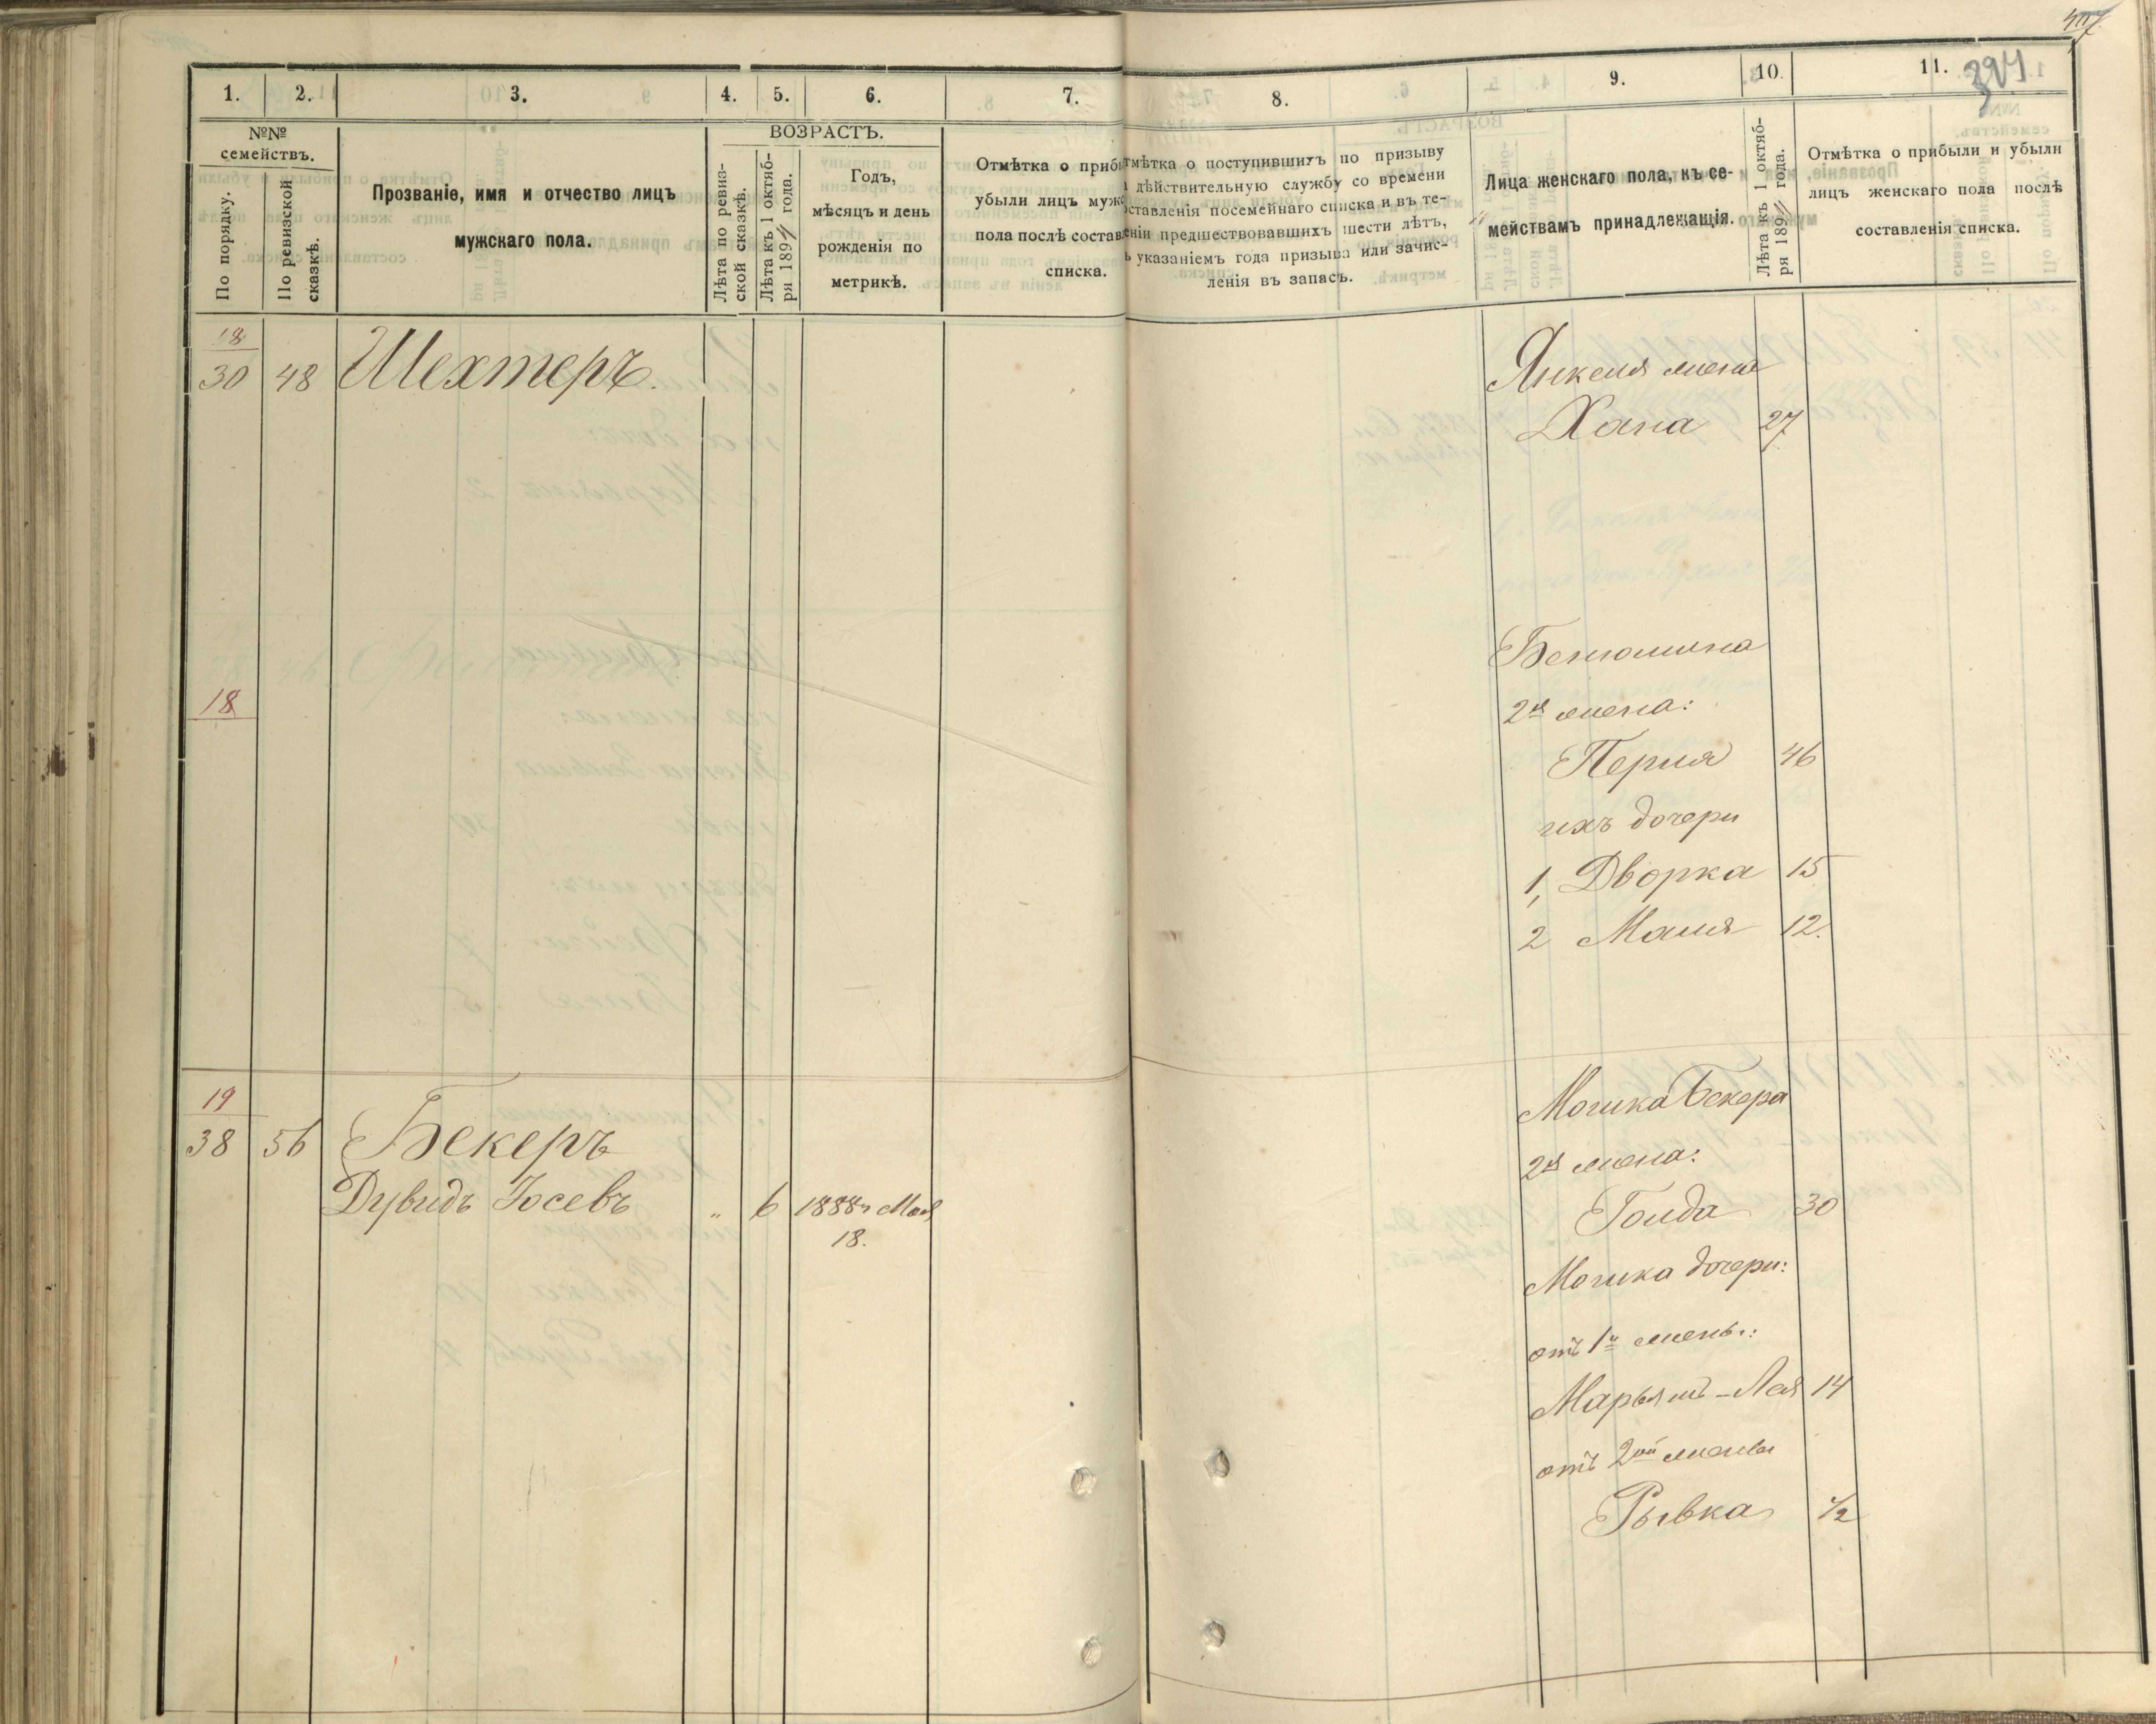 394
1. 2. 3. 4. 5. 6. 7. 8. 9. 10. 11.
№№ семействъ.
По порядку.
По ревизской сказкѣ.
Прозваніе, имя и отчество лицъ
мужскаго пола.
ВОЗРАСТЪ.
Лѣта по ревиз-
ской сказкѣ.
Лѣта къ 1 октяб-
ря 1894 года.
Годъ,
мѣсяцъ и день
рожденія по
метрикѣ.
Отмѣтка о прибы
убыли лицъ муж
пола послѣ состав
списка.
тмѣтка о поступившихъ по призыву
дѣйствительную службу со времени
оставленія посемейнаго списка и въ те-
еніи предшествовавшихъ шести лѣтъ,
ъ указаніемъ года призыва или зачис-
ленія въ запасъ.
Лица женскаго пола, къ се-
мействамъ принадлежащія.
Лѣта къ 1 октяб-
ря 1894 года.
Отмѣтка о прибыли и убыли
лицъ женскаго пола послѣ
составленія списка.
18
30 48 Шехтеръ.
Янкеля жена
Хана 27
18
Бенюмина
2я жена:
Перля 46
ихъ дочери
1, Дворка 15
2 Маля 12.
19
38 56 Бекеръ
Дувидъ Іосевъ " 6 1888 г Мая
18.
Мошка Бекера
2я жена:
Голда 30
Мошка дочери:
отъ 1й жены:
Марьямъ-Лея 14
отъ 2ой жены
Рывка 1/2